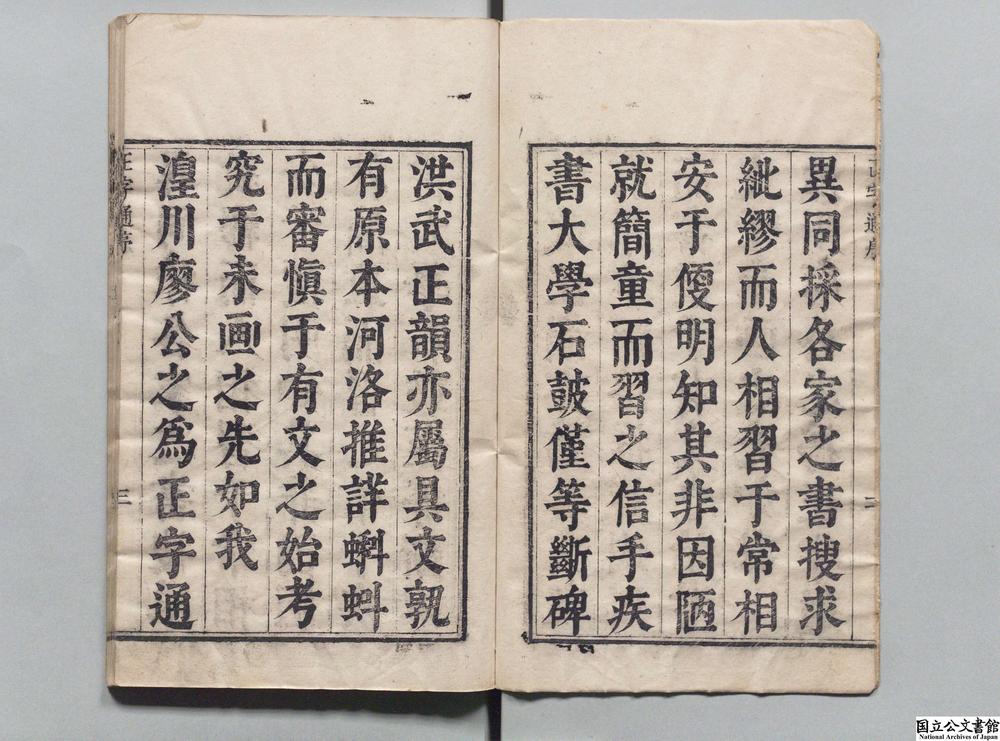 異同採各家之書搜求
紕繆而人相習于常相
安于便明知其非因陋
就簡童而習之信手疾
書大學石鼓僅等斷碑
洪武正韻亦屬具文孰
有原本河洛推詳蝌蚪
而審愼于有文之始考
究于未画之先如我
湟川廖公之爲正字通
正字通序
三
国立公文書館
National Archives of Japan